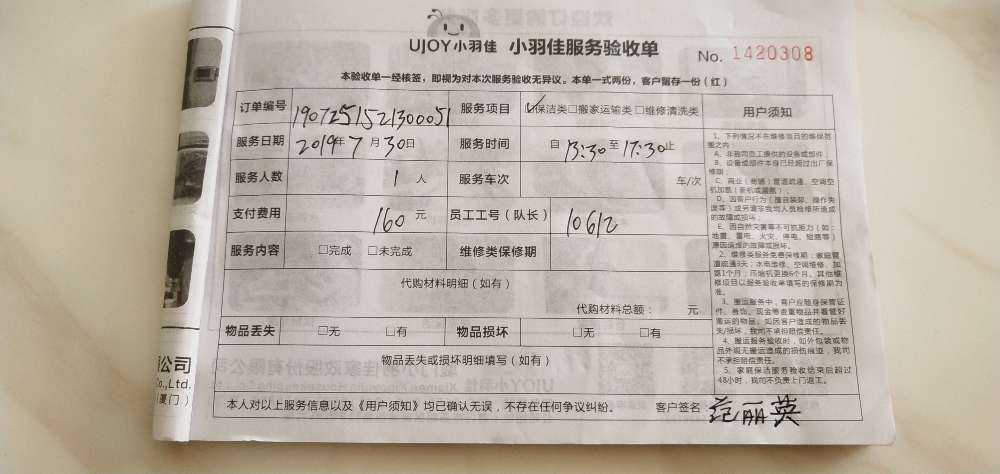 UJOY小羽佳 小羽佳服务验收单
No. 1420308
本验收单一经核签，即视为对本次服务验收无异议。本单一式两份，客户留存一份（红）
订单编号 190725152130051 服务项目 ☑保洁类□搬家运输类□维修清洗类 用户须知
服务日期 2019年7月30日 服务时间 自13:30至17:30止
服务人数 1人 服务车次 车/次
支付费用 160元 员工工号（队长） 10612
服务内容 □完成 □未完成 维修类保修期
代购材料明细（如有）
代购材料总额： 元
物品丢失 □无 □有 物品损坏 □无 □有
物品丢失或损坏明细填写（如有）
本人对以上服务信息以及《用户须知》均已确认无误，不存在任何争议纠纷。 客户签名 范丽英
1、下列情况不在维修项目的维保范
围之内
A、非我司员工提供的设备或部件；
B、设备或部件本身已经超过出厂保
修期；
C、商业（商铺）管道疏通、空调空
机加氨（新机或漏氨）；
D、因客户行为（擅自装卸、操作失
误等）或另请非我司人员检修所造成
的故障或损坏；
E、因自然灾害等不可抗拒力（如：
地震、雷电、火灾、停电、短路等）
原因造成的故障或损坏。
2、维修类服务免费保修期：家庭管
道疏通3天；水电维修、空调维修、加
氨1个月；压缩机更换6个月。其他维
修项目以服务验收单填写的保修期为
准。
3、搬运服务中，客户应随身保管证
件、首饰、现金等贵重物品并看管好
搬运的物品，如因客户造成的物品丢
失/损坏，我司不承担赔偿责任。
4、搬运服务验收时，如外包装或物
品外观无搬运造成的损伤痕迹，我司
不承担赔偿责任。
5、家庭保洁服务验收结束后超过
48小时，我司不负责上门返工。
公司
Co.,Ltd.
（厦门）